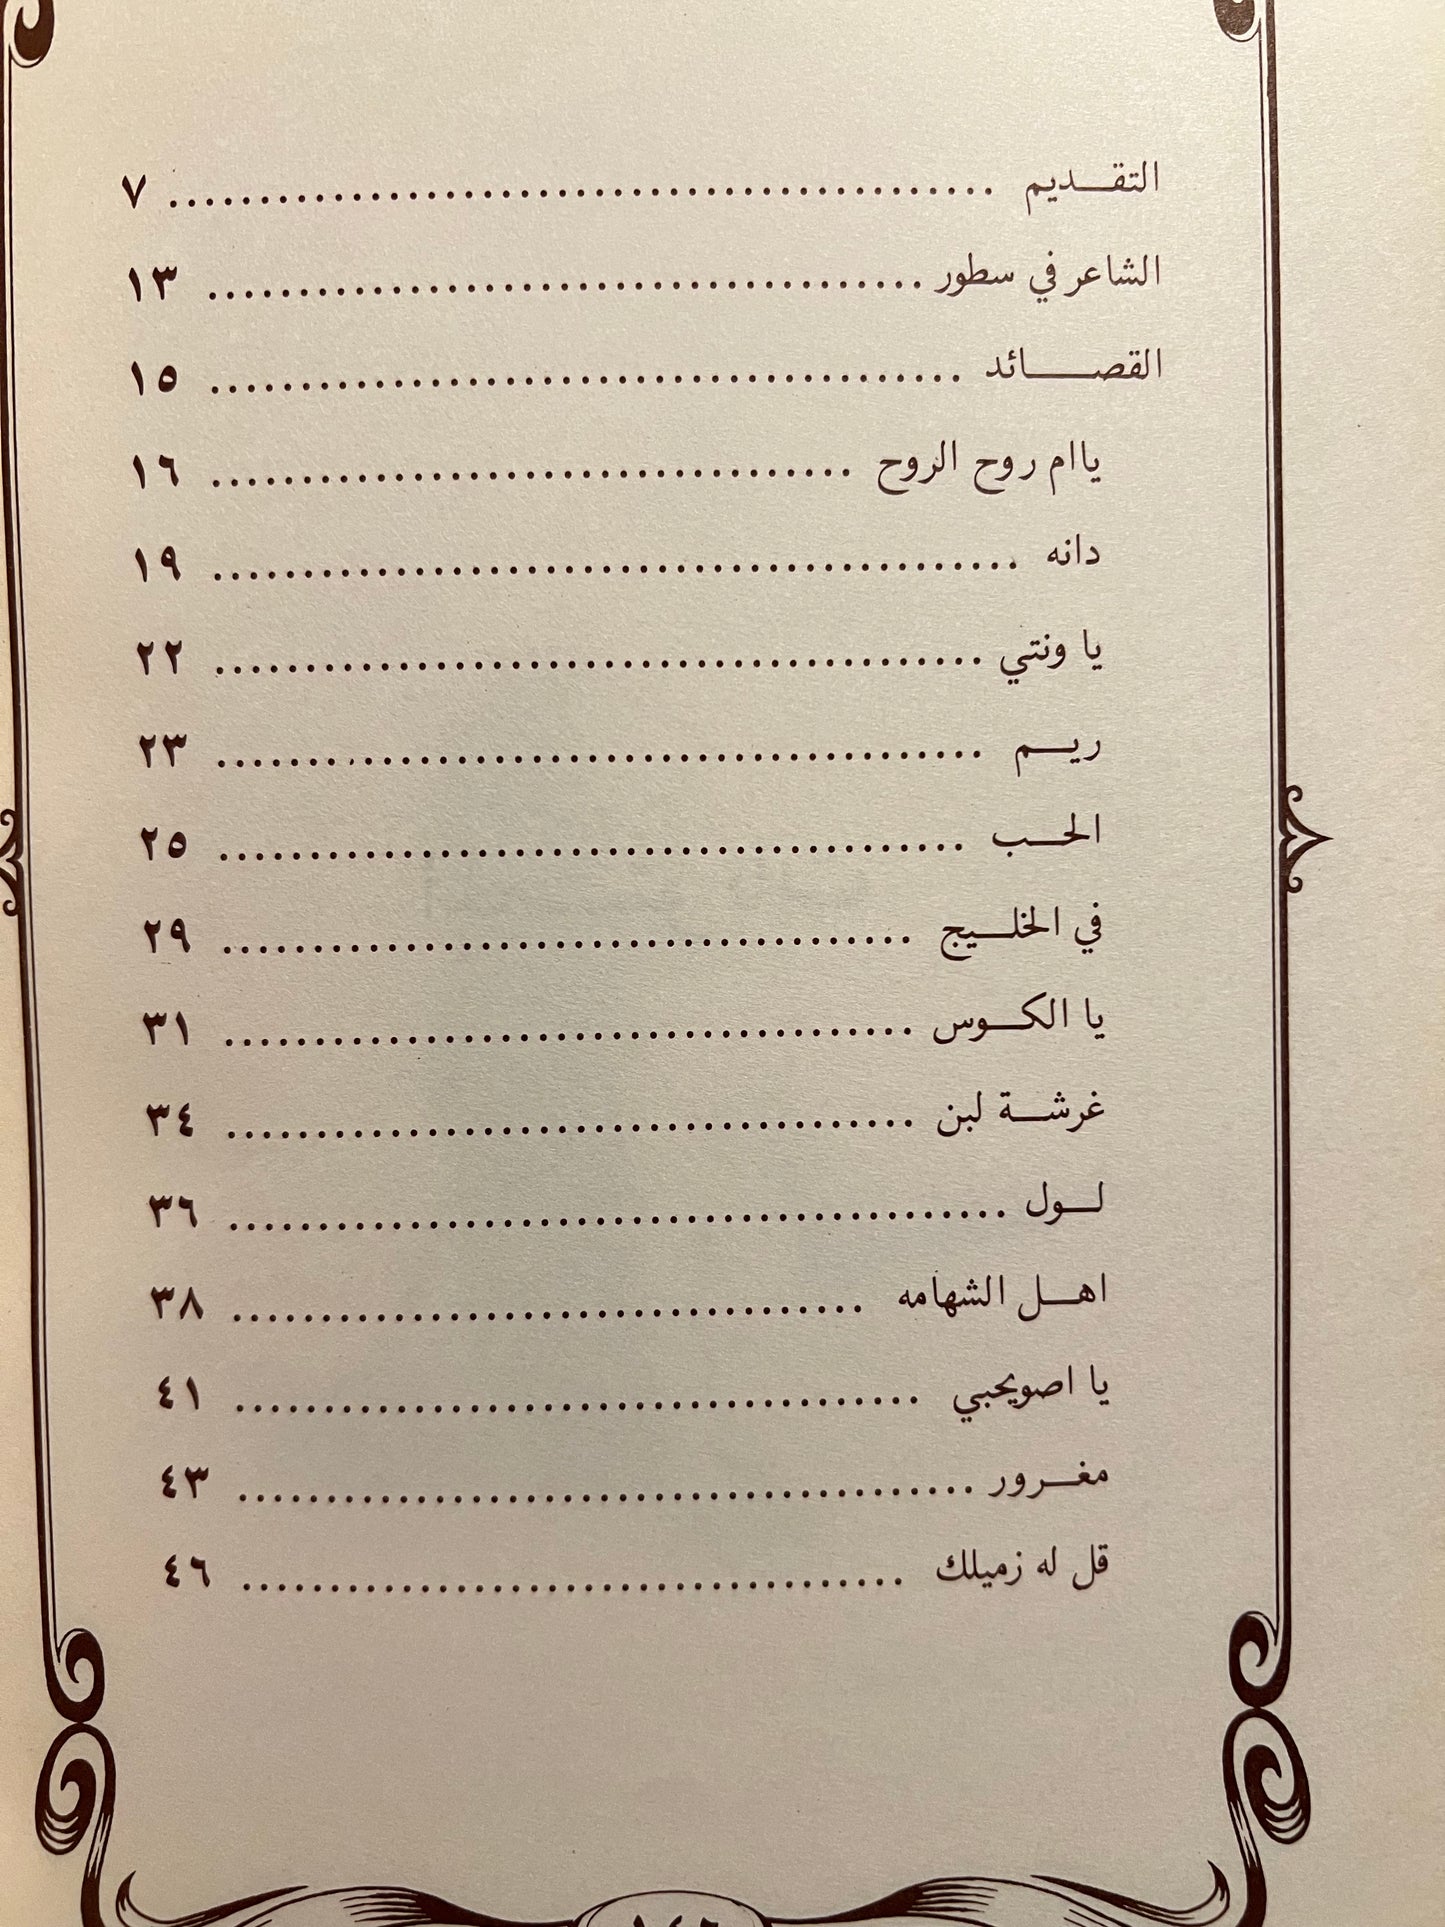 التقـــديم ........................................ ٧
الشاعر في سطور ........................................ ١٣
القصــــائد ........................................ ١٥
ياام روح الروح ........................................ ١٦
دانه ........................................ ١٩
يا ونتي ........................................ ٢٢
ريـــم ........................................ ٢٣
الحـــب ........................................ ٢٥
في الخلـــيج ........................................ ٢٩
يا الكـــوس ........................................ ٣١
غرشـــة لبن ........................................ ٣٤
لـــول ........................................ ٣٦
اهـــل الشهامه ........................................ ٣٨
يا اصويحبي ........................................ ٤١
مغـــرور ........................................ ٤٣
قل له زميلك ........................................ ٤٦